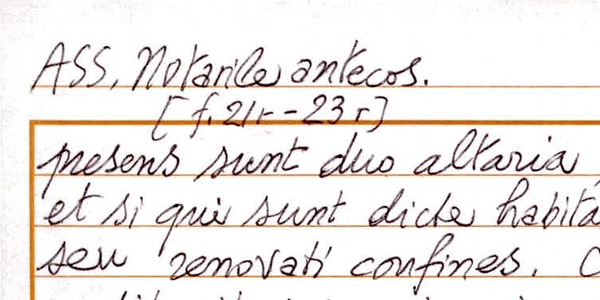 ASS, Notarile antecos.
[f. 21r - 23r]
presens sunt duo altaria,
et si qui sunt dicte habita
seu renovati confines.